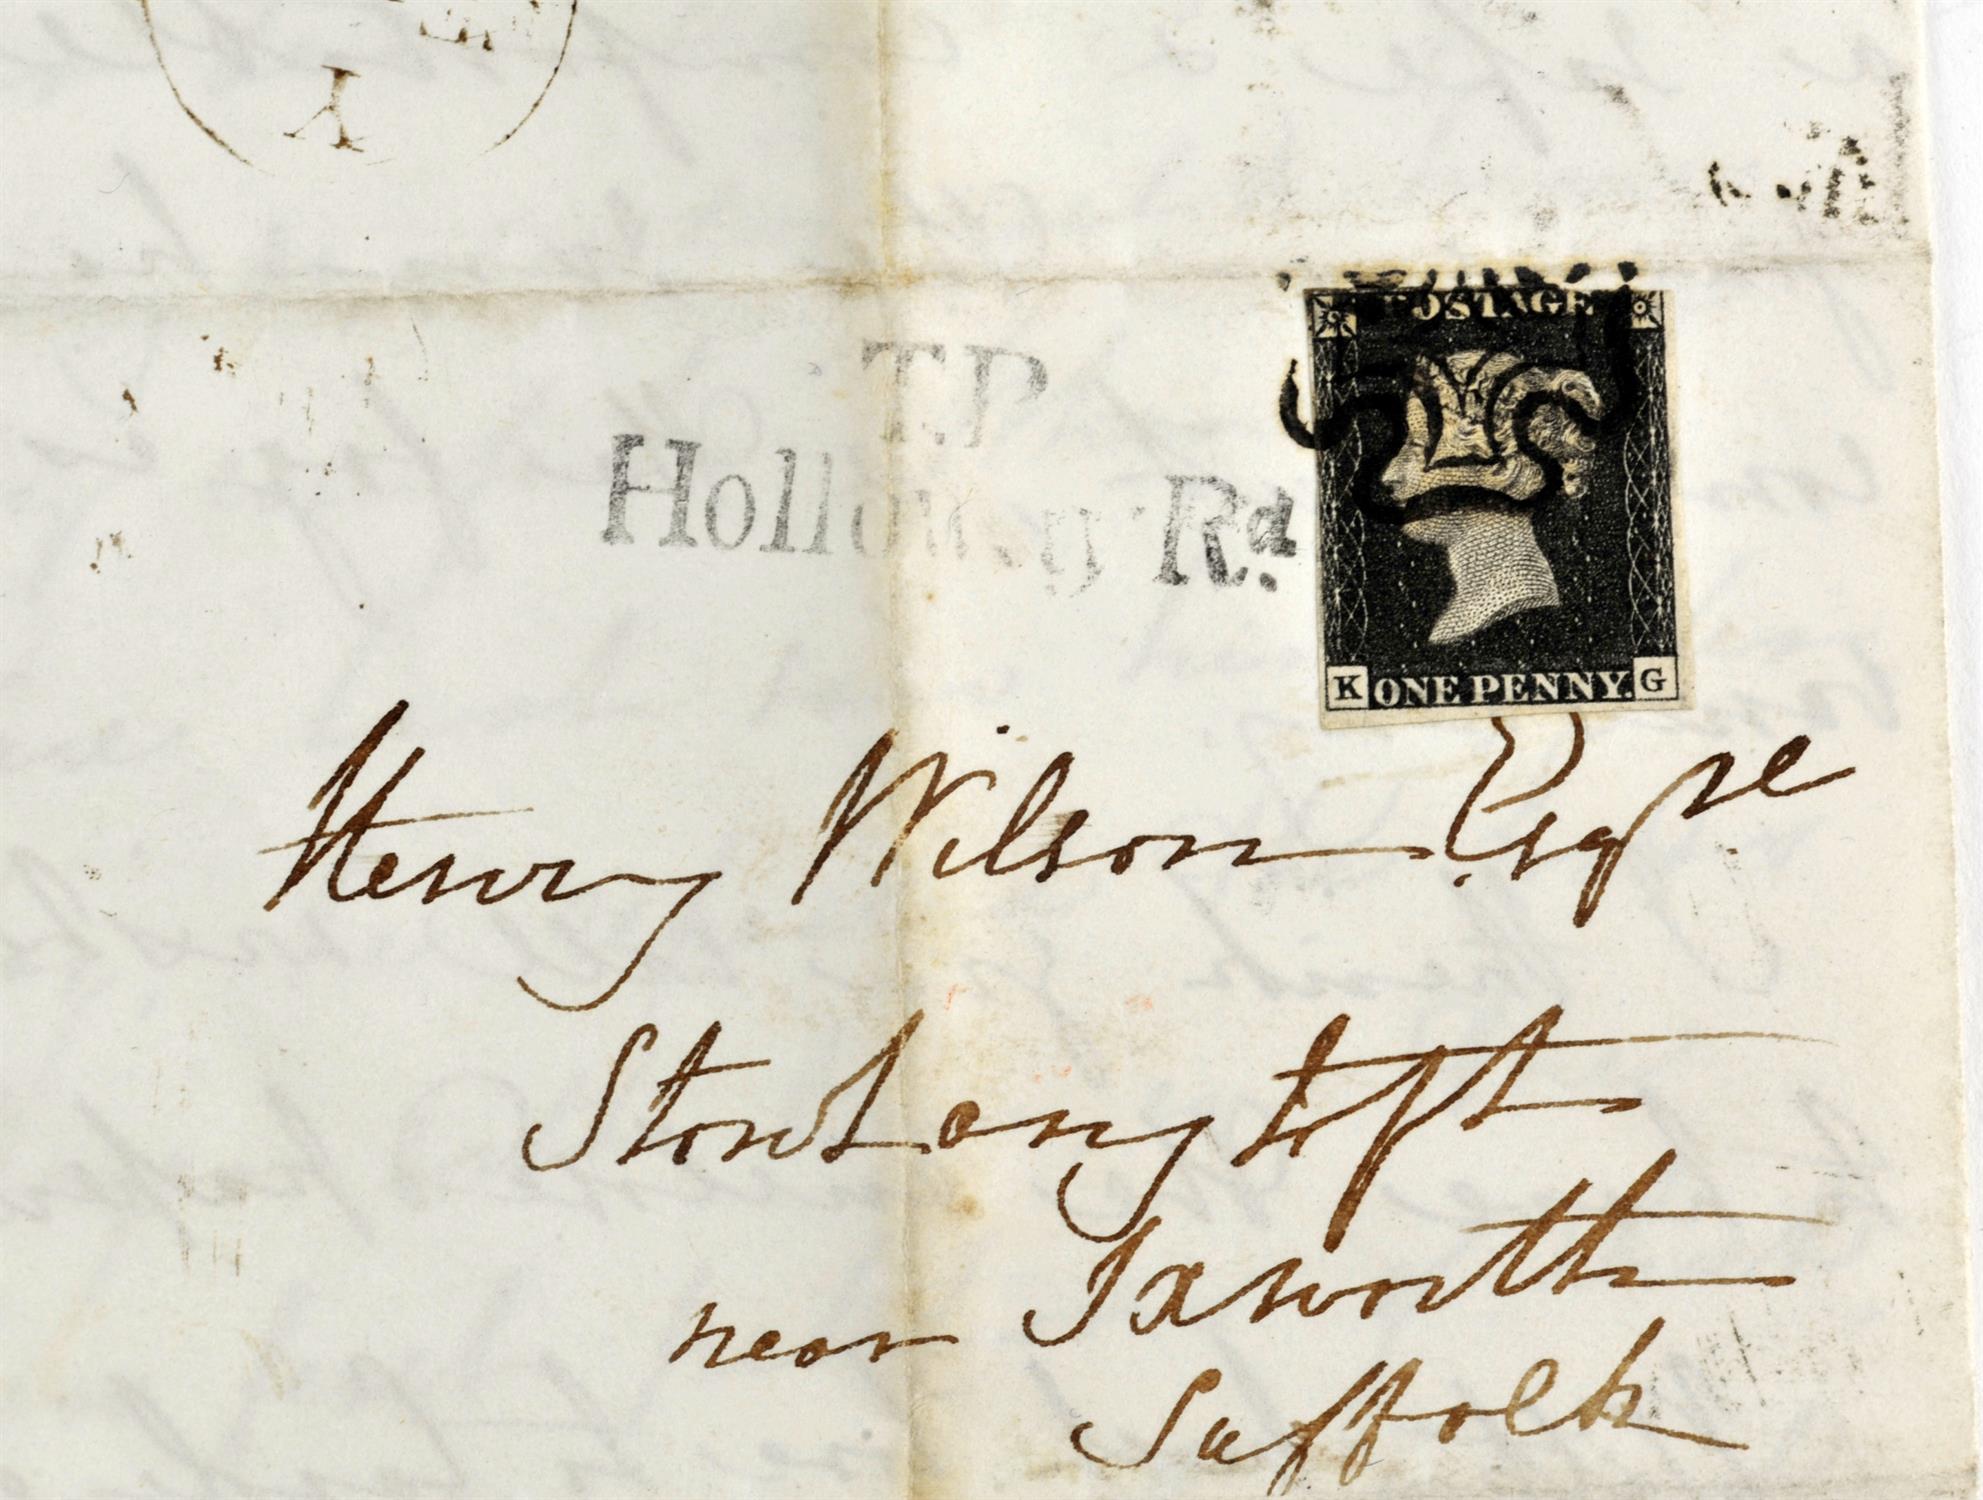 Y
T.P
Holloway Rd.
POSTAGE
K ONE PENNY. G
Henry Wilson Esqre
Stowlangtoft
near Ixworth
Suffolk